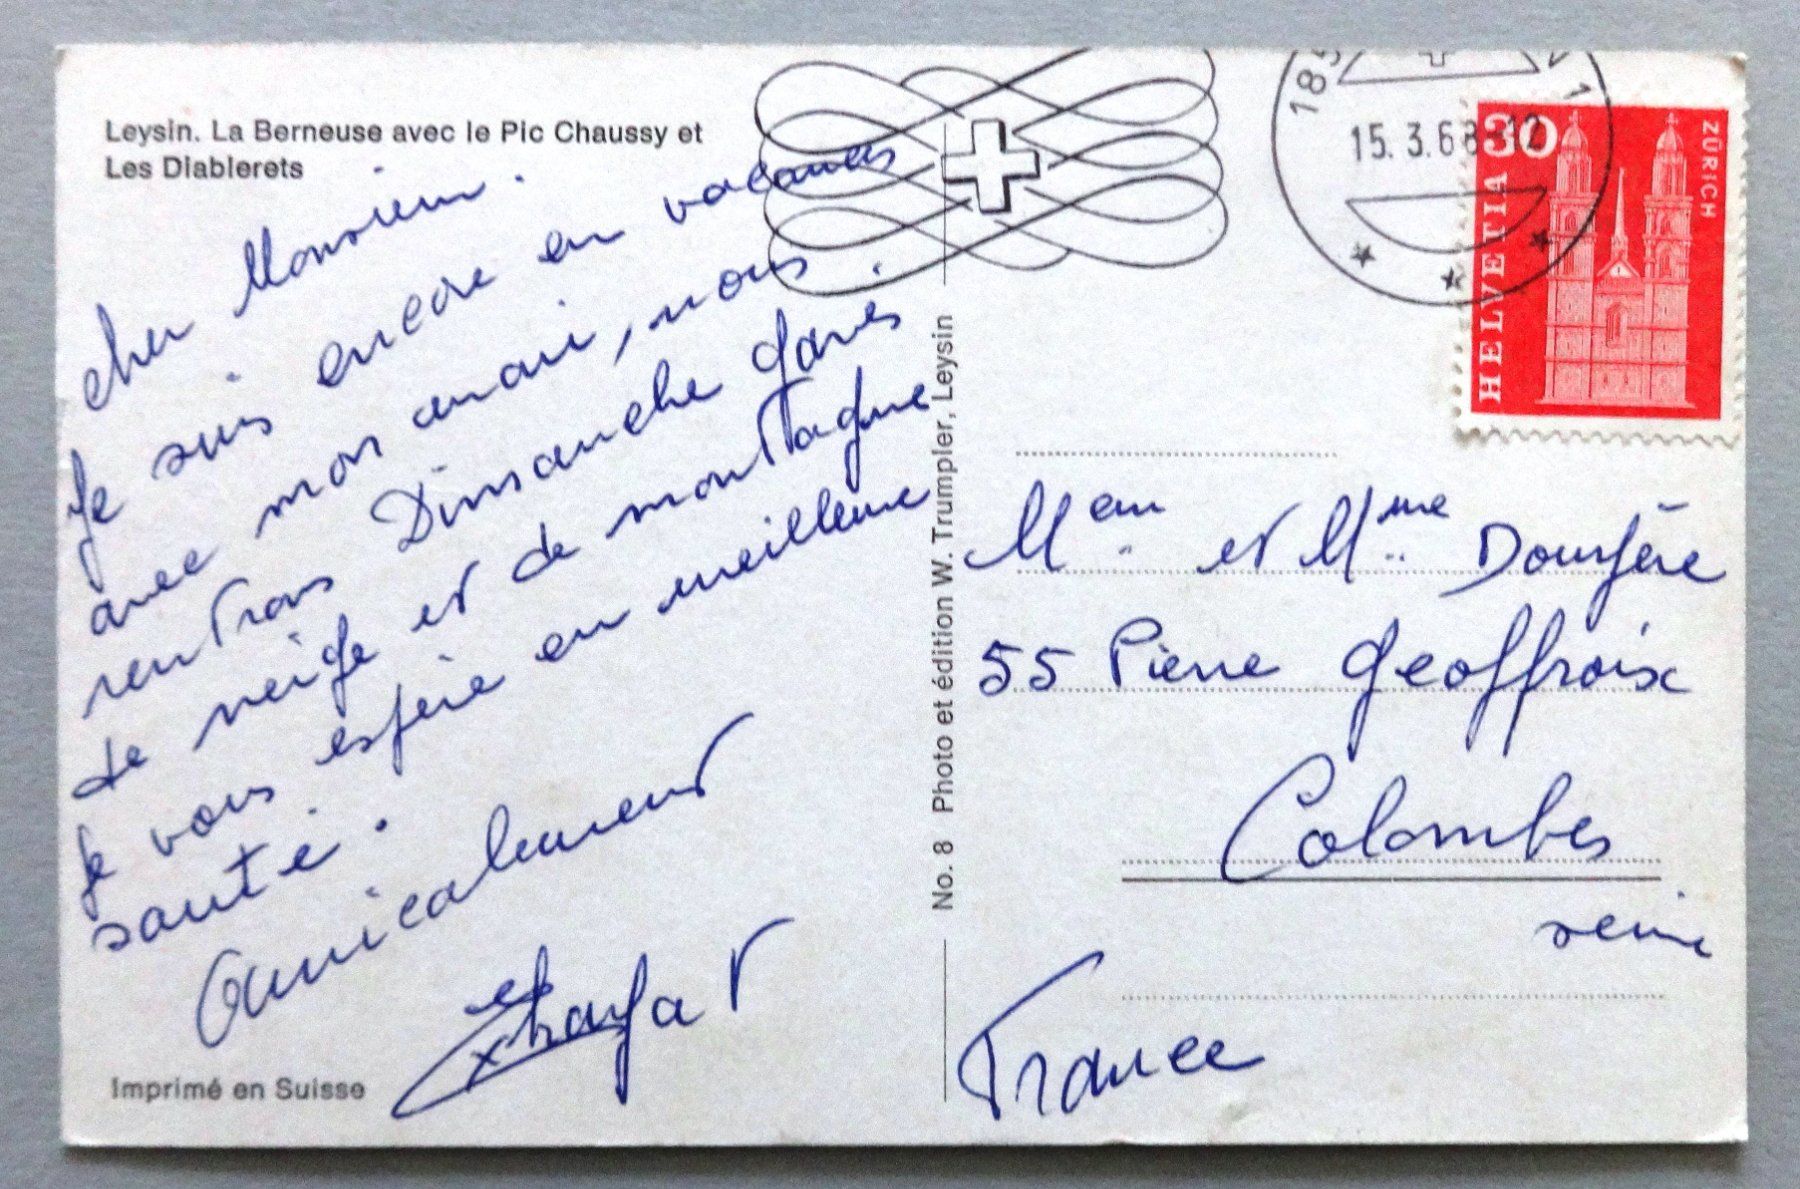 Leysin. La Berneuse avec le Pic Chaussy et
Les Diablerets
cher Monsieur.
Je suis encore en vacances
avec mon mari, nous
rentrons Dimanche gavés
de neige et de montagne.
Je vous espère en meilleure
santé.
Amicalement
Imprimé en Suisse
No. 8 Photo et édition W. Trumpler, Leysin
15.3.68-12
30
HELVETIA
ZÜRICH
et Mme
55 Pierre Geoffroix
Colombes
seine
France